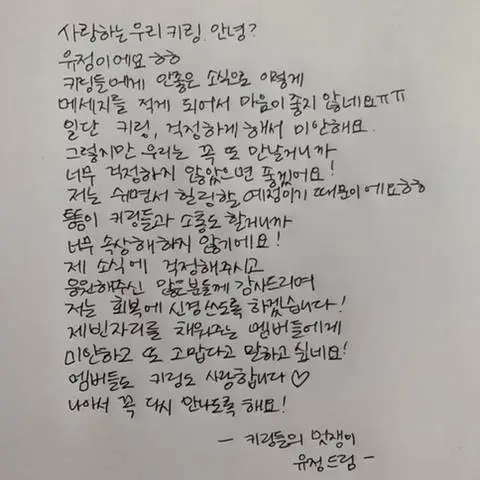 사랑하는 우리 키링 안녕?
유정이에요ㅎㅎ
키링들에게 안좋은 소식으로 이렇게
메세지를 적게 되어서 마음이 좋지 않네요ㅠㅠ
일단 키링, 걱정하게 해서 미안해요.
그렇지만 우리는 꼭 또 만날거니까
너무 걱정하지 않았으면 좋겠어요!
저는 쉬면서 힐링할 예정이기 때문이에요ㅎㅎ
틈틈이 키링들과 소통도 할거니까
너무 속상해 하지 않기에요!
제 소식에 걱정해주시고
응원해주신 많은분들께 감사드리며
저는 회복에 신경쓰도록 하겠습니다!
제 빈자리를 채워주는 멤버들에게
미안하고 또 고맙다고 말하고 싶네요!
멤버들도 키링도 사랑합니다♡
나아서 꼭 다시 만나도록 해요!
- 키링들의 멋쟁이
유정드림 -